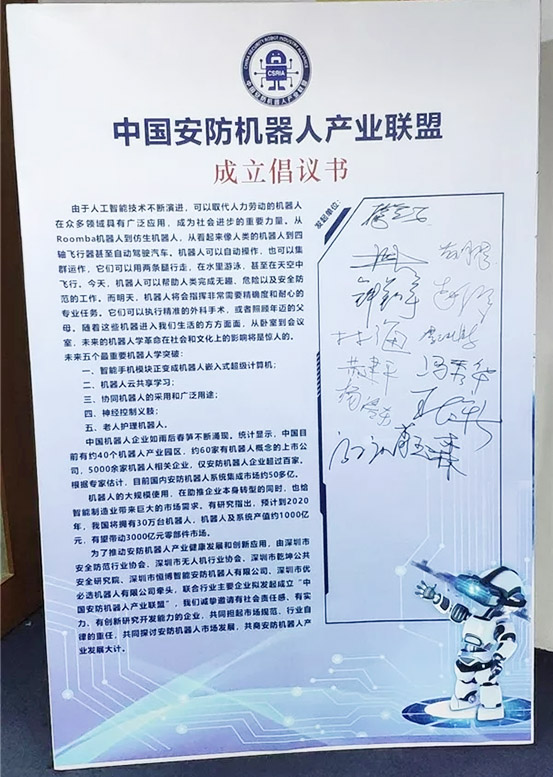 CHINA SECURITY ROBOT INDUSTRY ALLIANCE
CSRIA
中国安防机器人产业联盟
中国安防机器人产业联盟
成立倡议书
由于人工智能技术不断演进，可以取代人力劳动的机器人
在众多领域具有广泛应用，成为社会进步的重要力量。从
Roomba机器人到仿生机器人，从看起来像人类的机器人到四
轴飞行器甚至自动驾驶汽车，机器人可以自动操作，也可以集
群运作，它们可以用两条腿行走，在水里游泳，甚至在天空中
飞行。今天，机器人可以帮助人类完成无趣、危险以及安全防
范的工作。而明天，机器人将会指挥非常需要精确度和耐心的
专业任务。它们可以执行精准的外科手术，或者照顾年迈的父
母。随着这些机器进入我们生活的方方面面，从卧室到会议
室，未来的机器人学革命在社会和文化上的影响将是惊人的。
未来五个最重要机器人学突破：
一、智能手机模块正变成机器人嵌入式超级计算机；
二、机器人云共享学习；
三、协同机器人的采用和广泛用途；
四、神经控制义肢；
五、老人护理机器人。
中国机器人企业如雨后春笋不断涌现。统计显示，中国目
前有约40个机器人产业园区，约60家有机器人概念的上市公
司，5000余家机器人相关企业，仅安防机器人企业超过百家。
根据专家估计，目前国内安防机器人系统集成市场约50多亿。
机器人的大规模使用，在助推企业本身转型的同时，也给
智能制造业带来巨大的市场需求。有研究指出，预计到2020
年，我国将拥有30万台机器人，机器人及系统产值约1000亿
元，有望带动3000亿元零部件市场。
为了推动安防机器人产业健康发展和创新应用，由深圳市
安全防范行业协会、深圳市无人机行业协会、深圳市乾坤公共
安全研究院、深圳市恒博智能安防机器人有限公司、深圳市优
必选机器人有限公司牵头，联合行业主要企业拟发起成立“中
国安防机器人产业联盟”，我们诚挚邀请有社会责任感、有实
力、有创新研究开发能力的企业，共同担起市场规范、行业自
律的重任，共同探讨安防机器人市场发展，共商安防机器人产
业发展大计。
发起单位：
林海
冯秀华